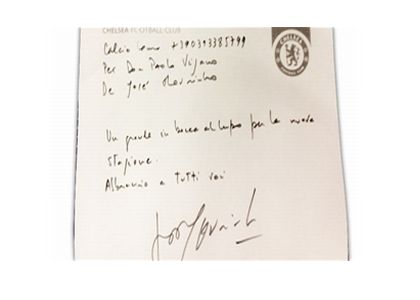 CHELSEA FOOTBALL CLUB
CHELSEA
Calcio Lecco +390393385799
Per Don Paolo Vigano
De José Mourinho
Un grande in bocca al lupo per la nuova
stagione.
Abbraccio a tutti voi